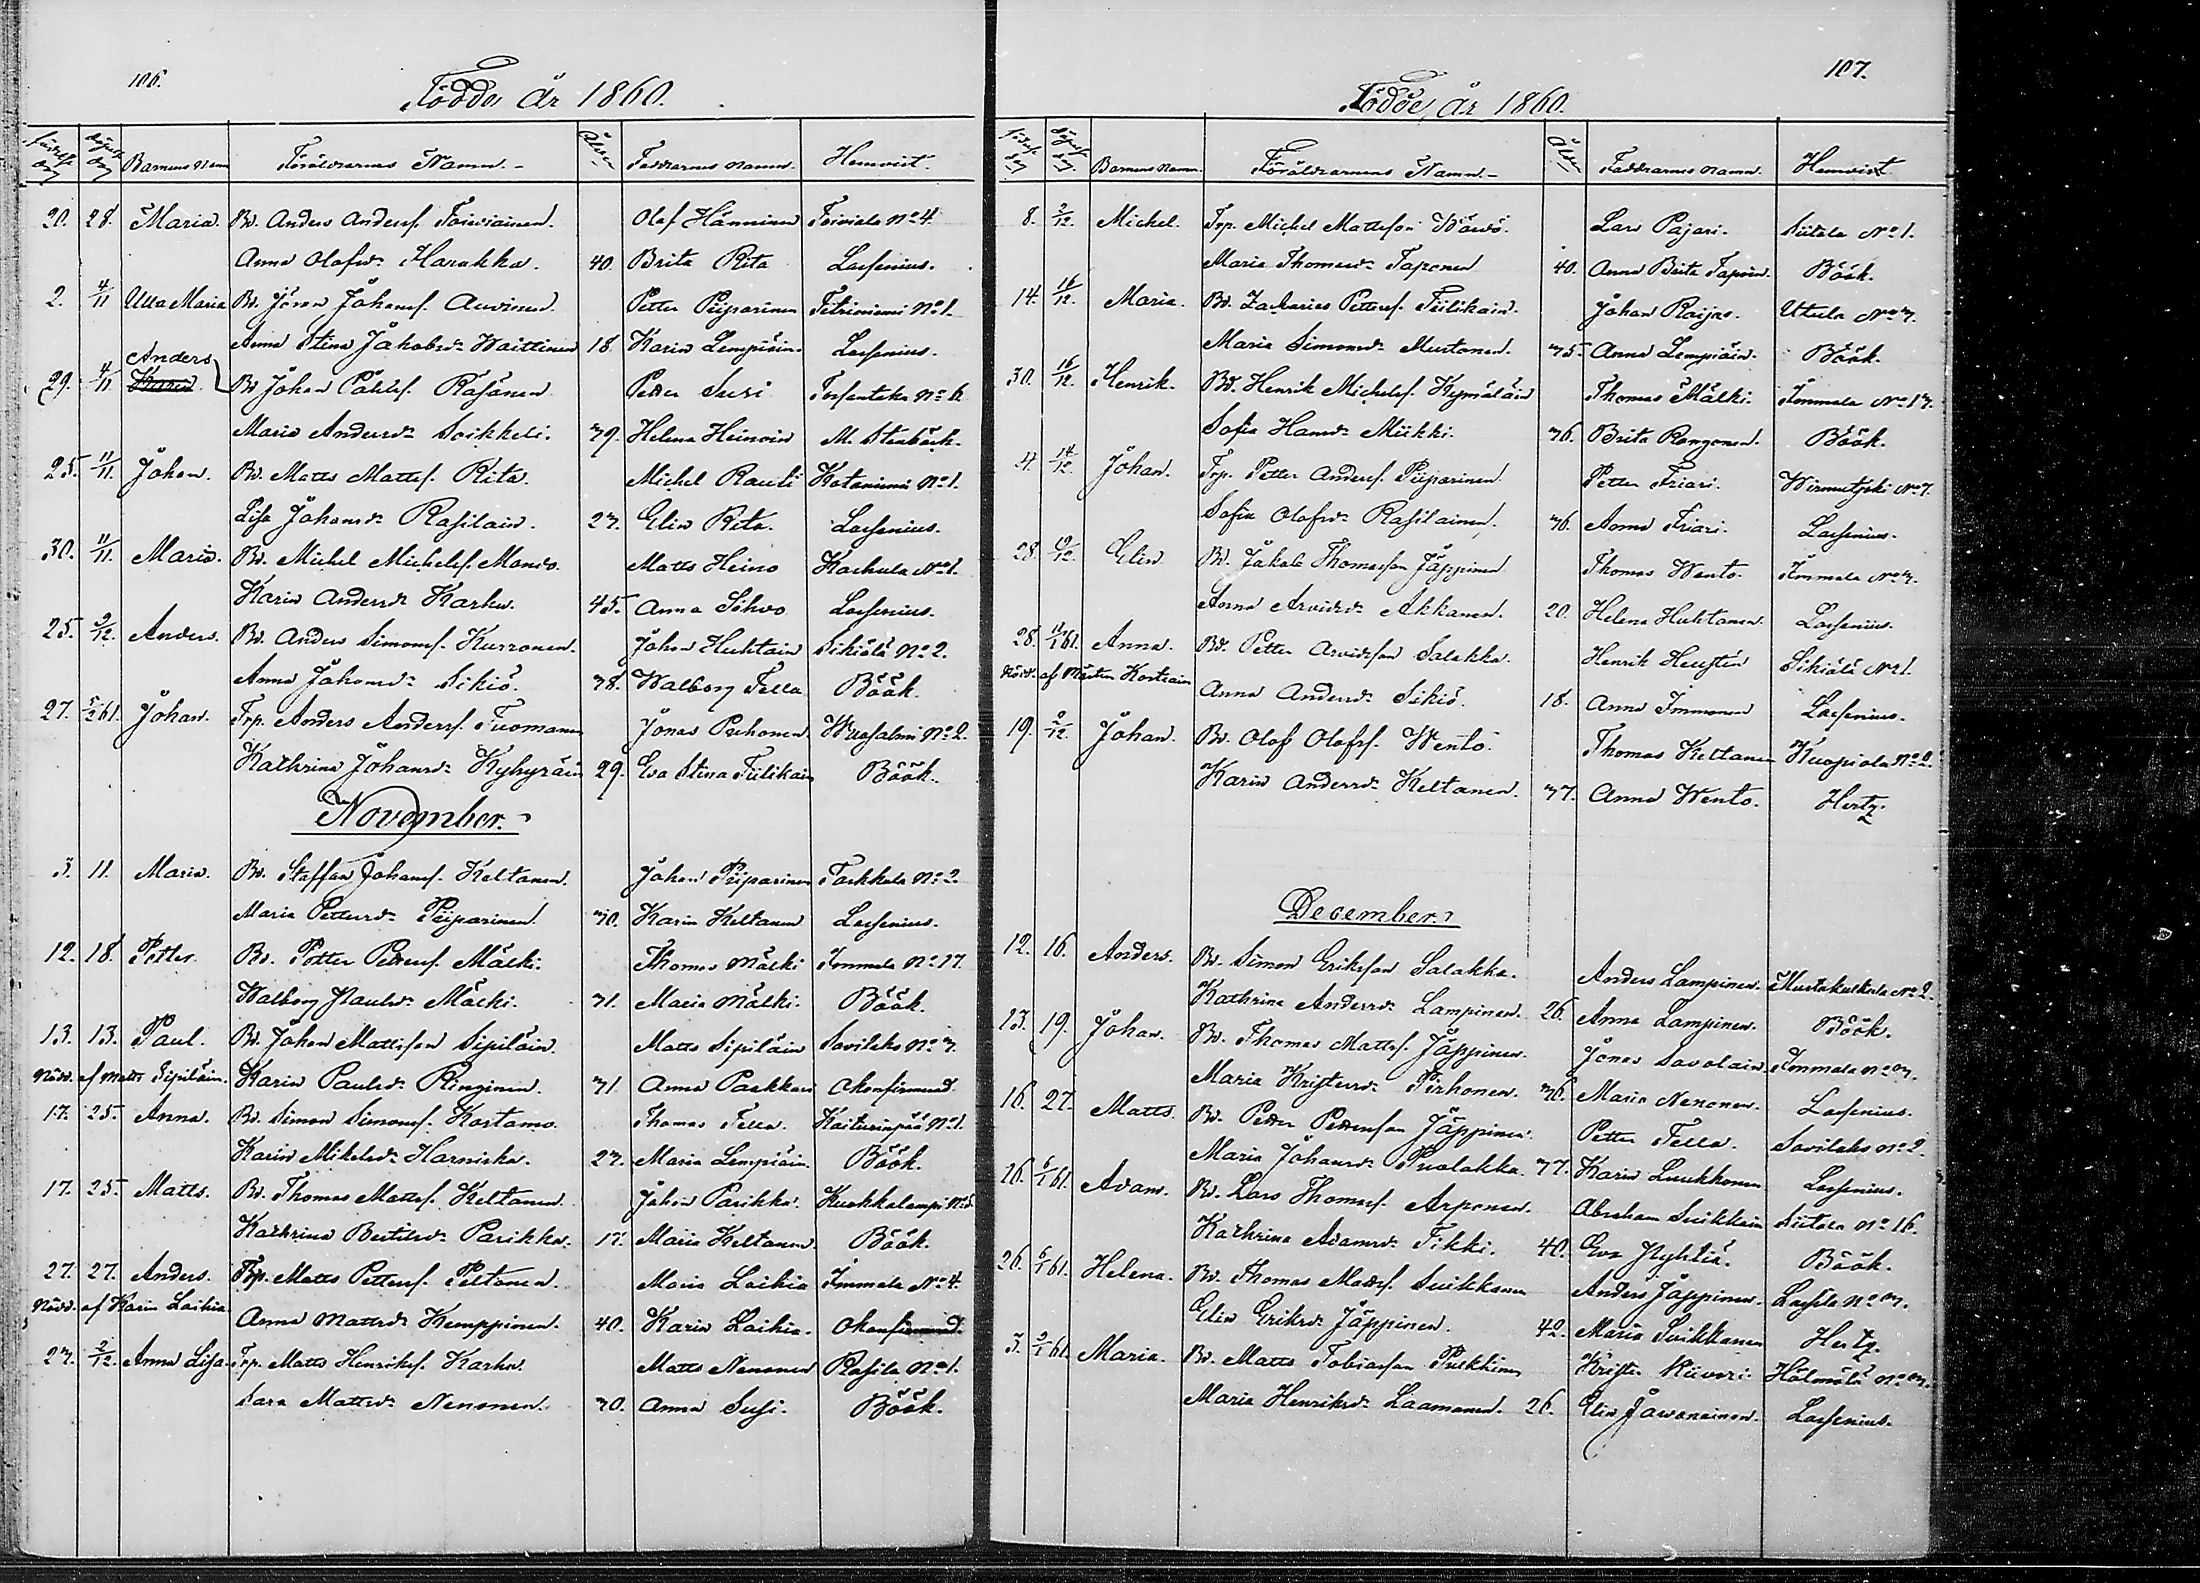 106.
Födde År 1860.
Födelse dag döpelse dag Barnens Namn Föräldrarnes Namn. Ålder Faddrarnes namn. Hemvist.
20. 28. Maria. Bd. Anders Andersf. Toiviainen. Olof Hänninen Toiviala No 4.
Anna Olofsdr Harakka. 40. Brita Rita Laesenius.
2. 4/11 Ulla Maria Bd. Jöran Johansf. Auvinen. Petter Piiparinen Petriniemi No 1.
Anna Stina Jakobsdr Waittinen 18. Karin Lempiäin. Laesenius.
Anders
29. 4/11 Karin Bd Johan Påhlsf. Räsänen Petter Susi No 6.
Maria Andersdr Soikkeli. 39. Helena Heinoin M. Stenbäck.
25. 11/11 Johan. Bd. Matts Mattsf. Rita. Michel Rauti Kataniemi No 1.
Lisa Johansdr Rasilain. 23. Elin Rita. Laesenius.
30. 11/11 Maria. Bd. Michel Michelsf. Matts Heino Kaehula No 1.
Karin Andersdr Karhu. 45. Anna Sihvo Laesenius.
25. 9/12. Anders. Bd. Anders Simonsf. Kurronen. Johan Huhtain Sikiölä No 2.
Anna Johansdr Sikiö. 38. Walborg Tella Böök.
27. 5/2 61. Johan. Trp. Anders Andersf. Tuomanen Jonas Puhonen. No 2.
Kathrina Johansdr Kyhyräin 29. Eva Stina Tiilikain Böök.
November.
3. 11. Maria. Bd. Staffan Johansf. Keltanen. Johan Piiparinen Tarkkola No 2.
Maria Pettersdr Piiparinen. 30. Karin Keltanen Laesenius.
12. 18. Petter. Bd. Petter Pettersf. Mälki. Thomas Mälki Immala No 17.
Walborg Paulsdr Mälki. 31. Maria Mälki. Böök.
13. 13. Paul. Bd. Johan Mattsson Sipiläin. Matts Sipiläin Savilaks No 3.
Nöd. af Matts Sipiläin. Karin Paulsdr Ringinen. 31. Anna Parkkari Okonfirmerad.
17. 25. Anna. Bd. Simon Simonsf. Kostamo. Thomas Tella. Kaiturinpää No 1.
Karin Mikelsdr Harnicka. 23. Maria Lempiäin. Böök.
17. 25. Matts. Bd. Thomas Mattsf. Keltanen. Johan Parikka. Kuokkalampi No 5.
Kathrina Bertilsdr Parikka. 17. Maria Keltanen Böök.
27. 27. Anders. Trp. Matts Pettersf. Peltonen. Maria Laihia Immala No 4.
Nöd. af Karin Laihia Anna Mattsdr Kemppinen. 40. Karin Laihia. Okonfirmerad.
23. 2/12. Anna Lisa. Trp. Matts Henriksf. Karhu. Matts Nenonen Rasila No 1.
Sara Mattsdr Nenonen. 30. Anna Susi. Böök.
107.
Födde, År 1860.
Födelse dag döpelse dag. Barnens Namn. Föräldrarnens Namn. Ålder Faddrarnes namn. Hemvist.
8. 2/12. Michel. Trp. Michel Mattsson Lars Pajari. Siitola No 1.
Maria Thomasdr Taponen 40. Anna Brita Tapoin Böök.
14. 16/12. Maria. Bd. Zacharias Pettersf. Tiilikain. Johan Raijas. Utula No 7.
Maria Simonsdr Mustonen. 35. Anna Lempiäin. Böök.
30. 16/12. Henrik. Bd. Henrik Michelsf. Kymäläin Thomas Mälki. Immala No 17.
Sofia Hansdr Miikki. 36. Brita Rongonen. Böök.
4. 14/12. Johan. Trp. Petter Andersf. Piiparinen. Petter Friari. Wirmutjoki No 7.
Sofia Olofsdr Rasilainen. 36. Anna Friari. Laesenius.
28. 9/12. Elin. Bd. Jakob Thomasson Jäppinen Thomas Wento. Immala No 3.
Anna Arvidsdr Akkanen. 20. Helena Huhtanen Laesenius.
28. 1/1 61. Anna. Bd. Petter Arvidsson Salakka. Henrik Sikiölä No 1.
Nöd. af Mårten Kostiain Anna Andersdr Sikiö. 18. Anna Immonen Laesenius.
19. 2/12. Johan. Bd. Olof Olofsf. Wento. Thomas Keltanen Kuopiola No 2.
Karin Andersdr Keltanen. 37. Anna Wento. Hertz.
December.
12. 16. Anders. Bd. Simon Eriksson Salakka. Anders Lampinen. No 2.
Kathrina Andersdr Lampinen. 26. Anna Lampinen. Böök.
13. 19. Johan. Bd. Thomas Mattsf. Jäppinen. Jonas Savolain Immala No 3.
Maria Kristersdr Pirhonen. 36. Maria Nenonen. Laesenius.
16. 27. Matts. Bd. Petter Pettersson Jäppinen. Petter Tella. Savilaks No 2.
Maria Johansdr Pualakka. 37. Karin Luukkonen Laesenius.
16. 6/1 61. Adam. Bd. Lars Thomasf. Arponen. Abraham Suikkain Siitola No 16.
Kathrina Adamsdr Tikki. 40. Eva Ryhtiä. Böök.
26. 6/1 61. Helena. Bd. Thomas Mattsf. Suikkanen Anders Jäppinen. No 3.
Elin Eriksdr Jäppinen. 42. Maria Suikkanen Hertz.
3. 9/1 61. Maria. Bd. Matts Tobiasson Pulkkinen Krister Kiiveri. Hölmölä No 3.
Maria Henriksdr Laamanen. 26. Elin Javanainen. Laesenius.